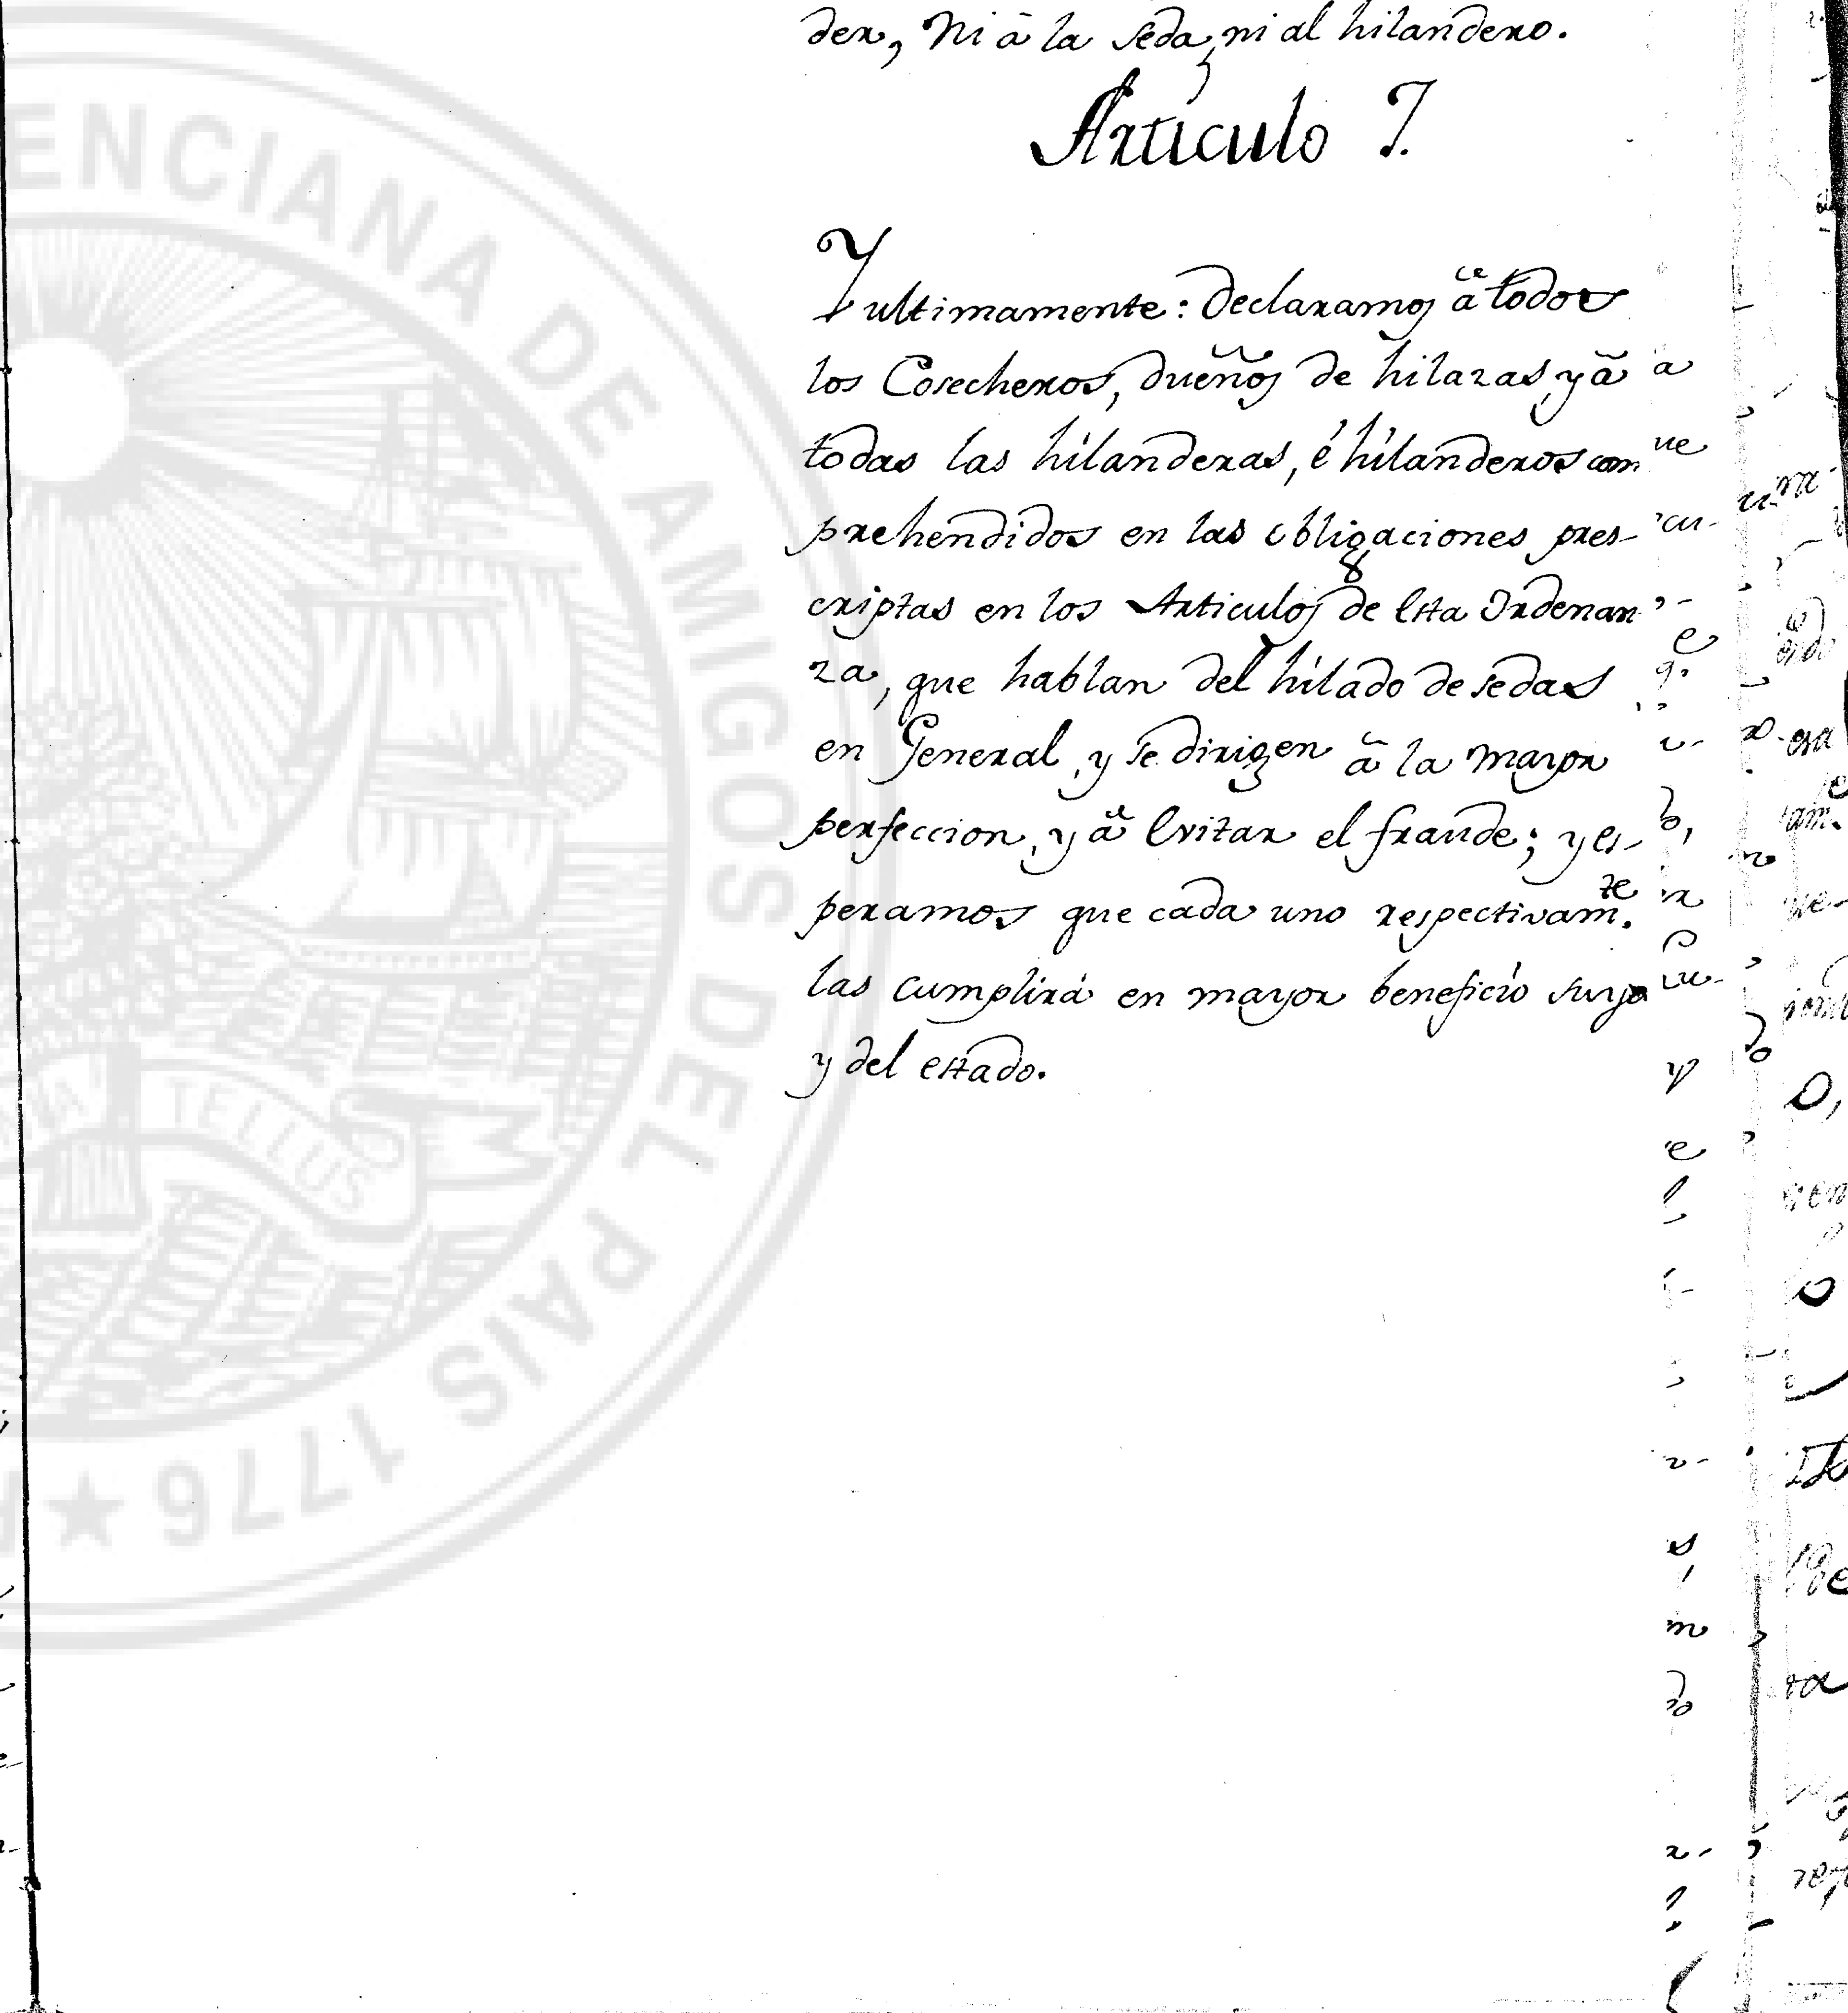 der, Ni à la seda, ni al hilandero.
Articulo 7.
Y ultimamente: Declaramos à todos
los Cosecheros, dueños de hilazas, y à
todas las hilanderas, é hilanderos com
prehendidos en las obligaciones pres-
criptas en los Articulos de Esta Ordenan
za, que hablan del hilado de sedas
en General, y se dirigen à la mayor
perfeccion, y à Evitar el fraude; y es-
peramos que cada uno respectivam.te
las cumplirá en mayor beneficio suyo
y del estado.
ENCIANA DE AMIGOS DEL PAIS 1776
TELLUS